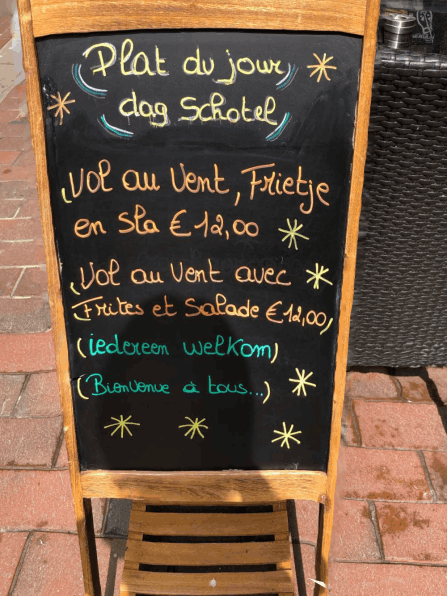 Plat du jour
dag Schotel
Vol au Vent, Frietje
en sla €12,00
Vol au Vent avec
Frites et Salade €12,00,
(iedereen welkom)
(Bienvenue à tous...)